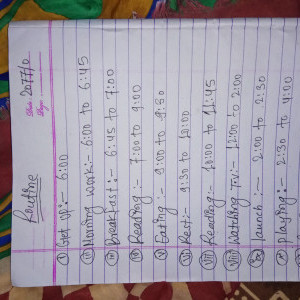 Date: 2077/0
Page:
Routine
(i) Get up:- 6:00
(ii) Morning work:- 6:00 to 6:45
(iii) Breakfast:- 6:45 to 7:00
(iv) Reading:- 7:00 to 9:00
(v) Eating:- 9:00 to 9:30
(vi) Rest:- 9:30 to 10:00
(vii) Reading:- 10:00 to 11:45
(viii) Watching TV:- 12:00 to 2:00
(ix) launch:- 2:00 to 2:30
(x) playing:- 2:30 to 4:00